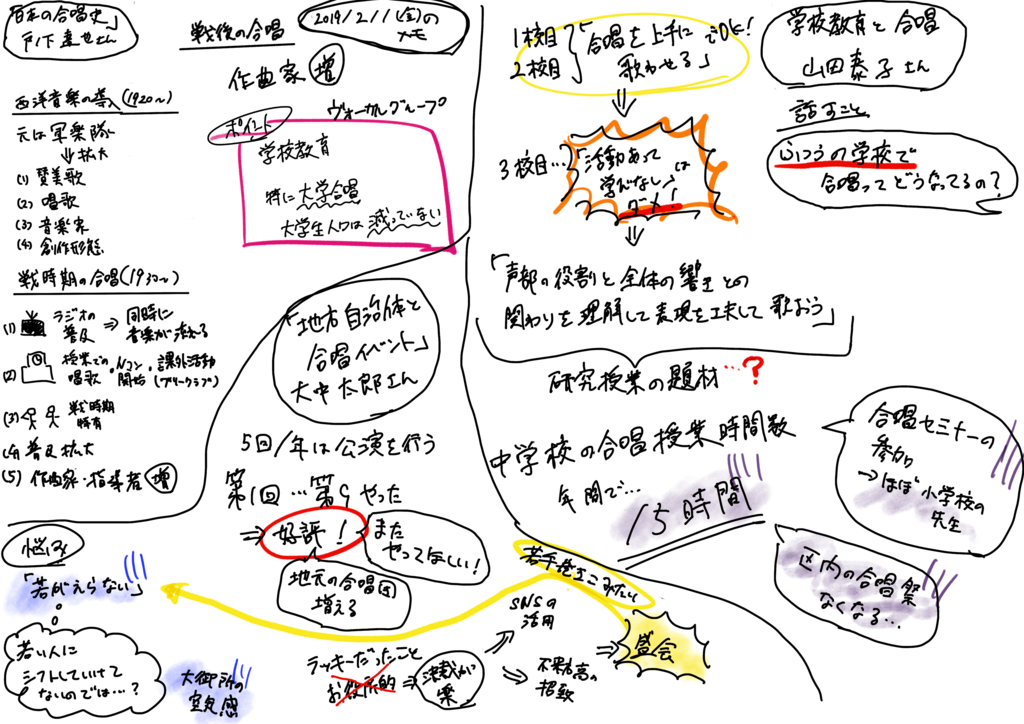 「日本の合唱史」
戸ノ下達也さん
西洋音楽の導入(1920〜)
元は軍楽隊
⇓拡大
(1) 賛美歌
(2) 唱歌
(3) 音楽家
(4) 創作形態
戦時期の合唱(1930〜)
(1) ラジオの普及 ⇒ 同時に音楽が
(2) 授業での唱歌・Nコン開始・課外活動(グリークラブ)
(3) 戦時期特有
(4) 普及拡大
(5) 作曲家・指導者 増
戦後の合唱
2019/2/11
のメモ
作曲家 増
ヴォーカルグループ
ポイント
学校教育
特に大学合唱
大学生人口は減っていない
「地方自治体と
合唱イベント」
大中太郎さん
5回/年は公演を行う
第1回…第9やった
⇒好評!
また
やってほしい!
地元の合唱団
増える
ラッキーだったこと
お役所的
⇒
SNSの
活用
招致
⇒盛会
悩み
「若がえらない」
若い人に
シフトしていけて
ないのでは…?
大御所の
空気感
1校目
2校目
「合唱を上手に
歌わせる」
でOK!
⇓
3校目…
「活動あって
学びなし」は
ダメ!
⇓
「声部の役割と全体の響きとの
関わりを理解して表現を工夫して歌おう」
研究授業の題材…?
中学校の合唱授業時間数
年間で…
15時間
合唱セミナーの
参加
→ほぼ小学校の
先生
区内の合唱祭
なくなる…
学校教育と合唱
山田泰子さん
話すこと
ふつうの学校で
合唱ってどうなってるの?